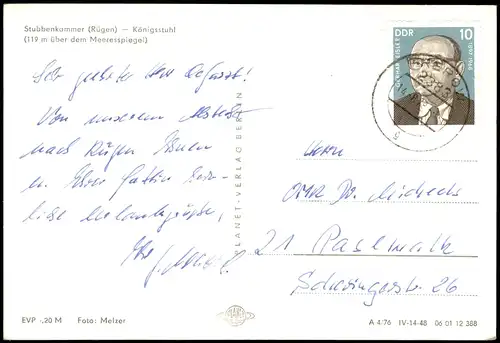 Stubbenkammer (Rügen) — Königsstuhl
(119 m über dem Meeresspiegel)
Sehr geehrter Herr
Von unserem
nach Rügen Ihnen
u. Ihrer Gattin herz-
liche Urlaubsgrüße,
Ihr
PLANET-VERLAG BERLIN
DDR 10
Herrn
OMR Dr.
21 Pasewalk
26
EVP -,20 M Foto: Melzer
A 4/76 IV-14-48 06 01 12 388